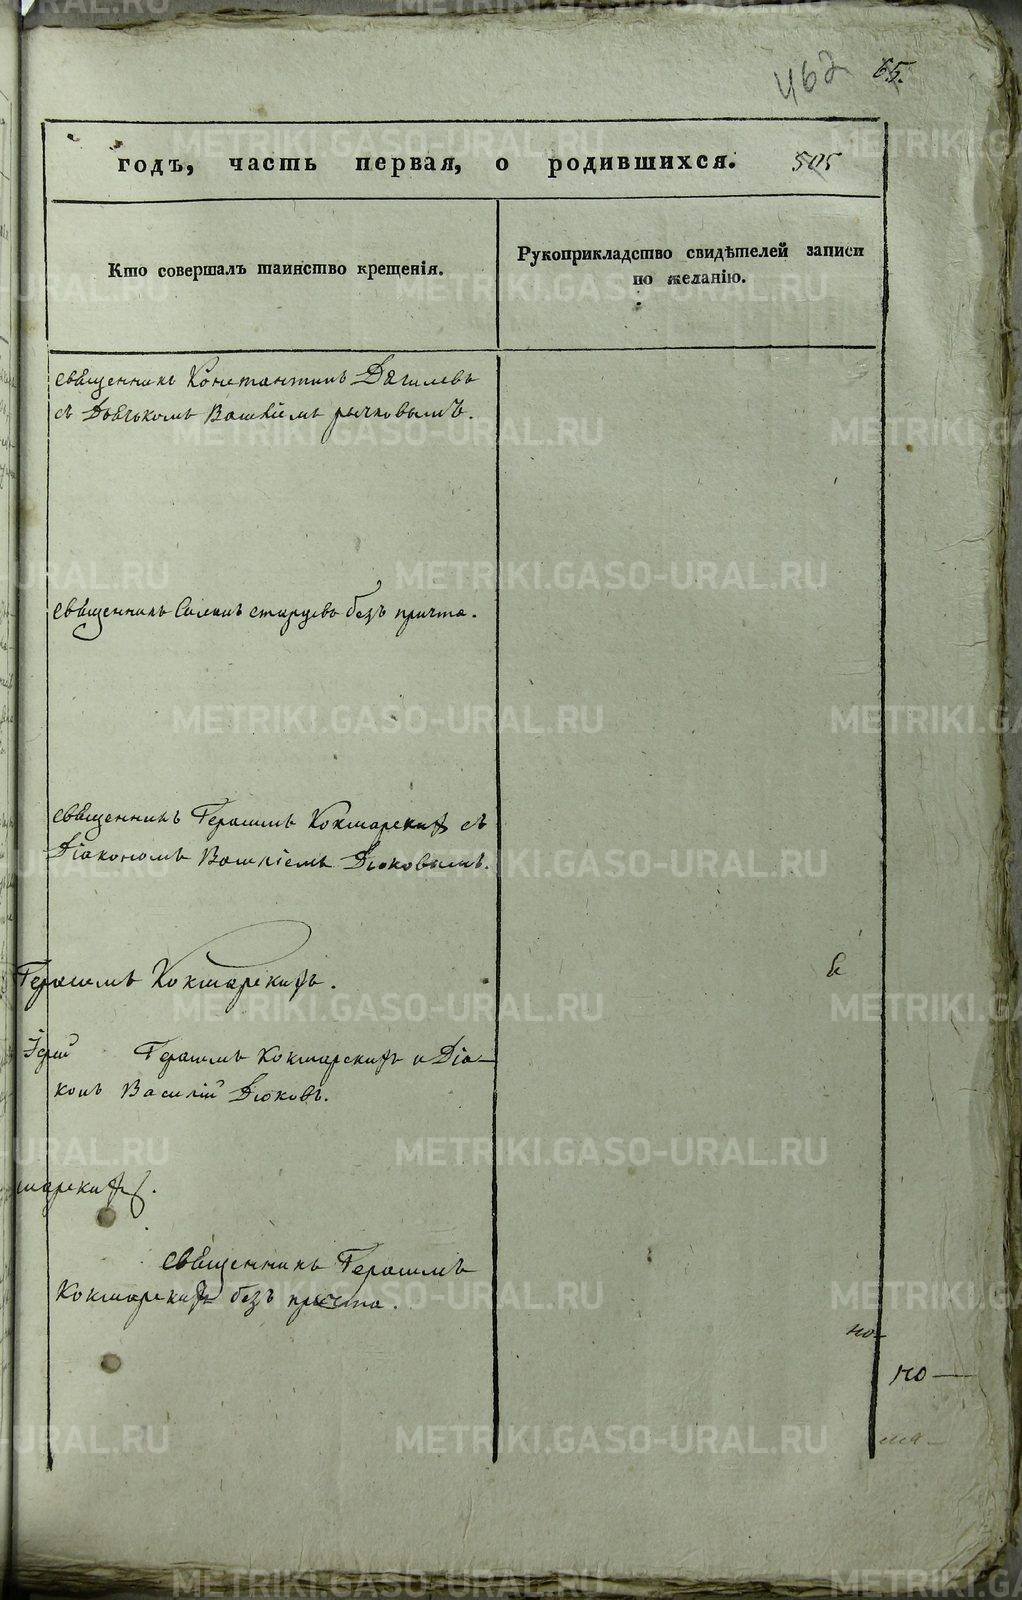 462 65.
годъ, часть первая, о родившихся. 505
Кто совершалъ таинство крещенія.
Рукоприкладство свидѣтелей записи
по желанію.
Священникъ Константинъ Дягилевъ
съ Дьячкомъ Василіемъ рычковымъ.
Священникъ Симеонъ старцевъ безъ причта.
Священникъ Герасимъ Кокшарскій съ
Діакономъ Василіемъ Дюковымъ.
Герасимъ Кокшарскій.
Іерей Герасимъ Кокшарскій и Діа-
конъ Василій Дюковъ.
шарскій.
Священникъ Герасимъ
Кокшарскій безъ причта.
но-
но-
METRIKI.GASO-URAL.RU